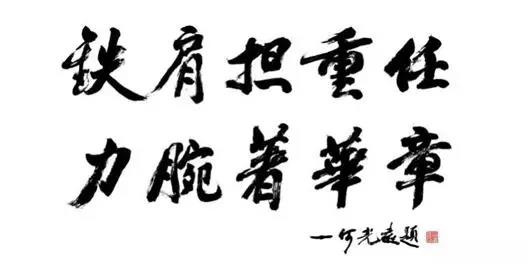 铁肩担重任
力腕著華章
一何光題